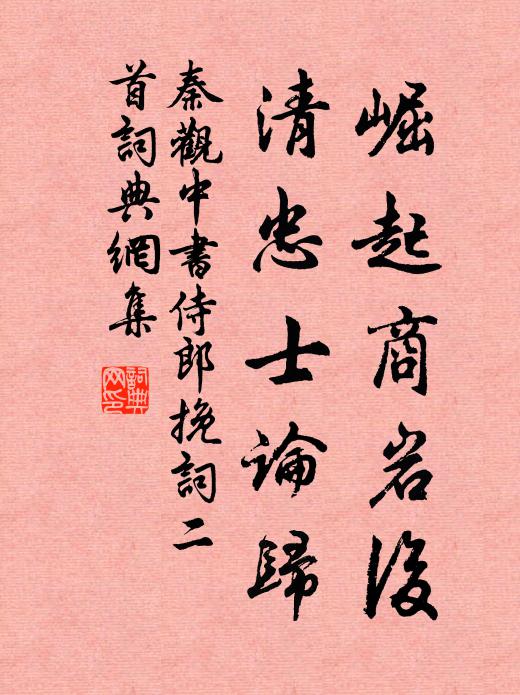 崛起商岩後
清忠士論歸
秦觀中書侍郎挽詞二
首詞典網集
詞典網印